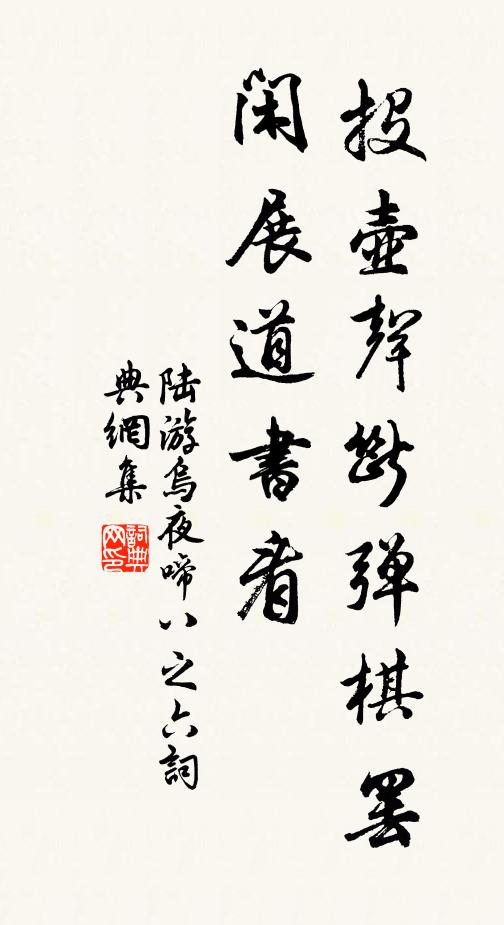 投壺聲斷彈棋罷
閑展道書看
陸游烏夜啼八之六詞
典網集
詞典网印